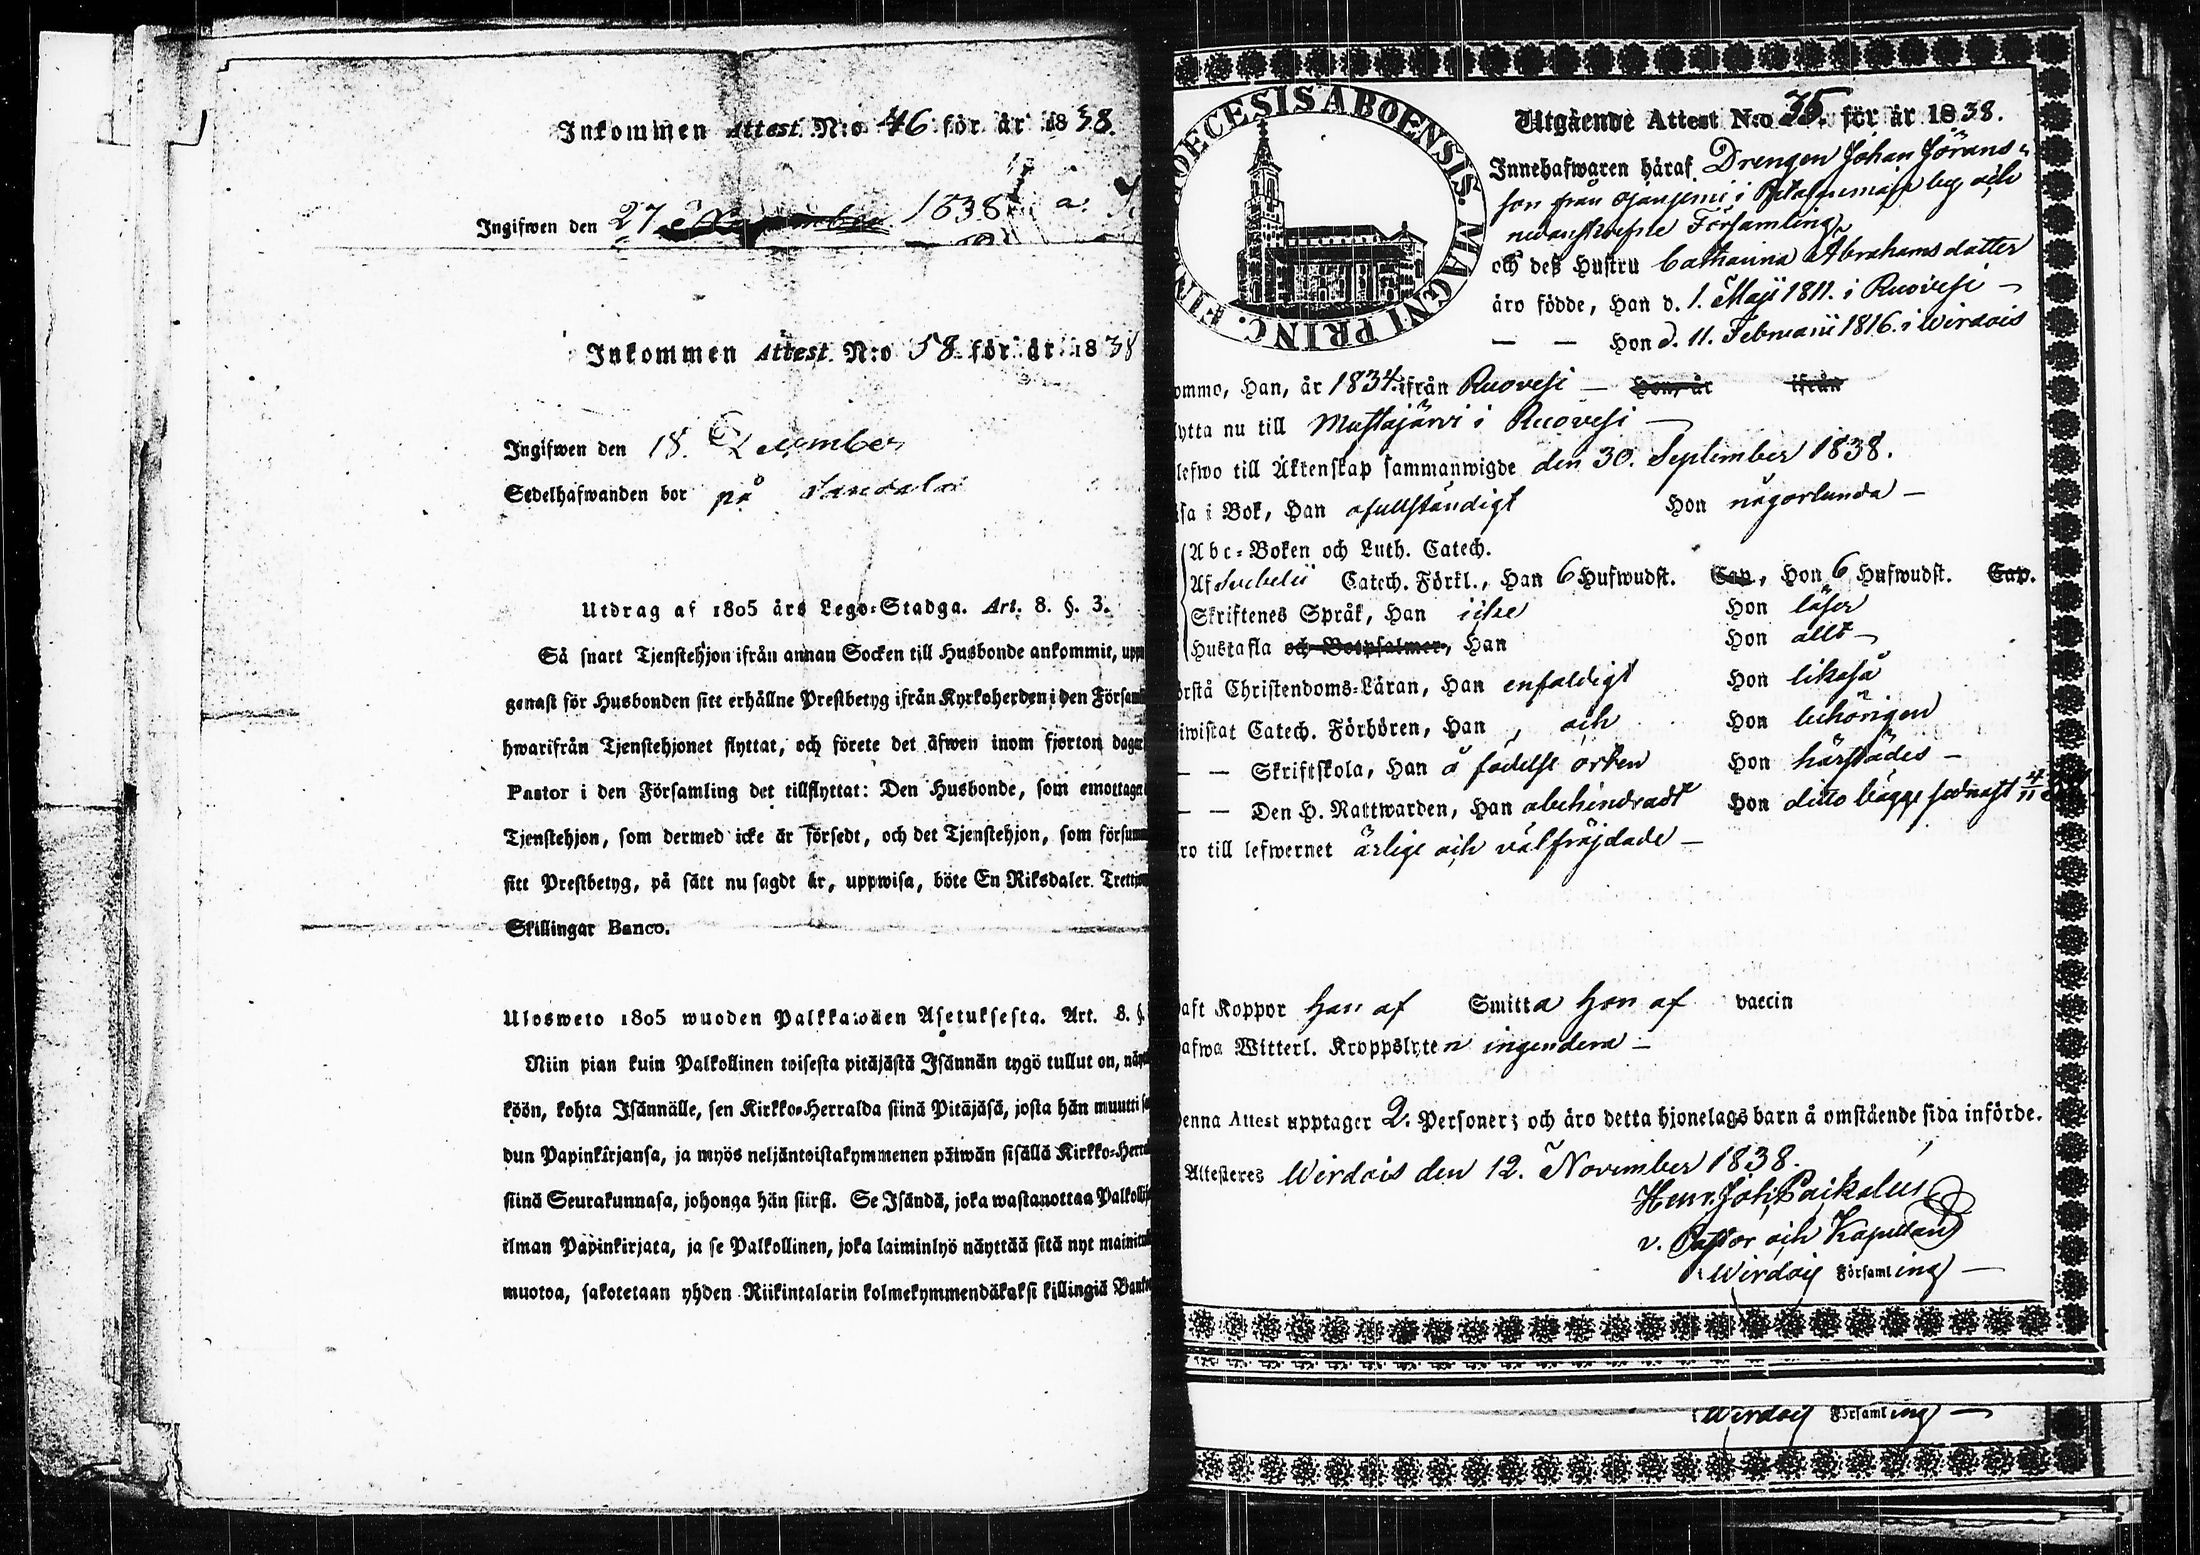 Inkommen Attest N:o 46 för år 1838.
Ingifwen den 27 1838
Inkommen Attest N:o 58 för år 1838
Ingifwen den 18. December
Sedelhafwanden bor på
Utdrag af 1805 års Lego-Stadga. Art. 8. §. 3.
Så snart Tjenstehjon ifrån annan Socken till Husbonde ankommit, upp
genast för Husbonden sitt erhållne Prestbetyg ifrån Kyrkoherden i den Församl
hwarifrån Tjenstehjonet flyttat, och förete det äfwen inom fjorton dagar
Pastor i den Församling det tillflyttat: Den Husbonde, som emottager
Tjenstehjon, som dermed icke är försedt, och det Tjenstehjon, som försum
sitt Prestbetyg, på sätt nu sagdt är, uppwisa, böte En Riksdaler Trettio
Skillingar Banco.
Ulosweto 1805 wuoden Palkkawäen Asetuksesta. Art. 8. §.
Niin pian kuin Palkollinen toisesta pitäjästä Isännän tygö tullut on, näyt
köön, kohta Isännälle, sen Kirkko-Herralda siinä Pitäjäsä, josta hän muutti sa
dun Papinkirjansa, ja myös neljäntoistakymmenen päiwän sisällä Kirkko-Herra
siinä Seurakunnasa, johonga hän siirsi. Se Isändä, joka wastanottaa Palkollis
ilman Papinkirjata, ja se Palkollinen, joka laiminlyö näyttää sitä nyt mainitul
muotoa, sakotetaan yhden Riikintalarin kolmekymmendäkaksi killingiä Banko
DIOECESIS ABOENSIS. MAGNI PRINC. FIN
Utgående Attest N:o 35. för år 1838.
Innehafwaren häraf Drengen Johan Jörans-
son från i by och
nedanskrefne Församling
och deß Hustru Catharina Abrahamsdatter
äro födde, Han d. 1. Maji 1811. i Ruovesi —
— — Hon d. 11. Februarii 1816. i Wirdois
ommo, Han, år 1834. ifrån Ruovesi — Hon, år ifrån
lytta nu till Mustajärvi i Ruovesi —
lefwo till Äktenskap sammanwigde den 30. September 1838.
sa i Bok, Han ofullständigt Hon någorlunda —
Abc-Boken och Luth. Catech.
Af Svebelii Catech. Förkl., Han 6 Hufwudst. Cap., Hon 6 Hufwudst. Cap.
Skriftenes Språk, Han icke Hon läser
Hustafla och Botpsalmer, Han Hon allt —
örstå Christendoms-Läran, Han enfaldigt Hon likaså
iwistat Catech. Förhören, Han , och Hon behörigen
— — Skriftskola, Han å födelse orten Hon härstädes —
— — Den H. Nattwarden, Han obehindradt Hon ditto bägge sednast 4/11
ro till lefwernet ärlige och välfräjdade —
aft Koppor Han af Smitta Hon af vaccin
afwa Witterl. Kroppslyten ingendera —
enna Attest upptager 2. Personer; och äro detta hjonelags barn å omstående sida införde.
Attesteres Wirdois den 12. November 1838.
Henr. Joh. Paikalus
v. Pastor och Kapellan
i Wirdois Församling —
Wirdois Församling —